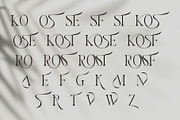 KO OS SE SF ST KOS
OSE KOST KOSE KOSF
RO ROS ROST ROSF
A E F G K M N
S R T D V W Z